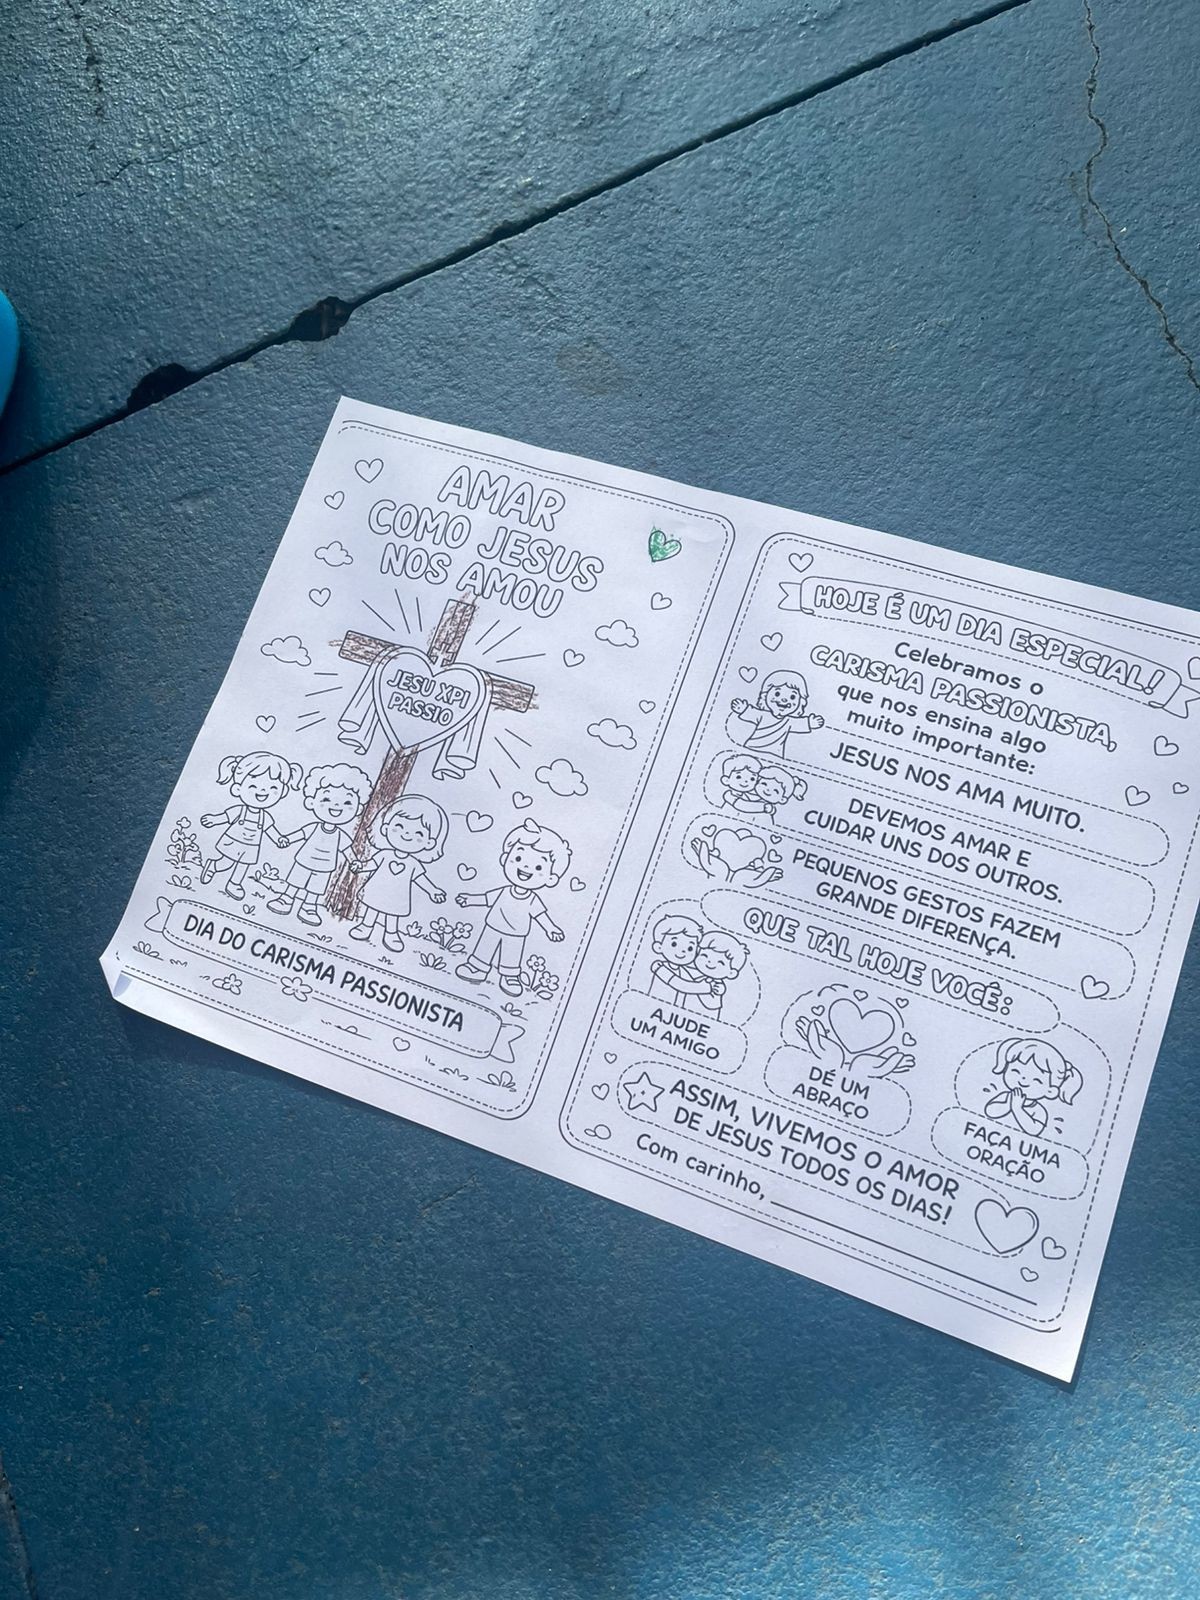 AMAR
COMO JESUS
NOS AMOU
JESU XPI
PASSIO
DIA DO CARISMA PASSIONISTA
HOJE É UM DIA ESPECIAL!
Celebramos o
CARISMA PASSIONISTA,
que nos ensina algo
muito importante:
JESUS NOS AMA MUITO.
DEVEMOS AMAR E
CUIDAR UNS DOS OUTROS.
PEQUENOS GESTOS FAZEM
GRANDE DIFERENÇA.
QUE TAL HOJE VOCÊ:
AJUDE
UM AMIGO
DÊ UM
ABRAÇO
FAÇA UMA
ORAÇÃO
ASSIM, VIVEMOS O AMOR
DE JESUS TODOS OS DIAS!
Com carinho,